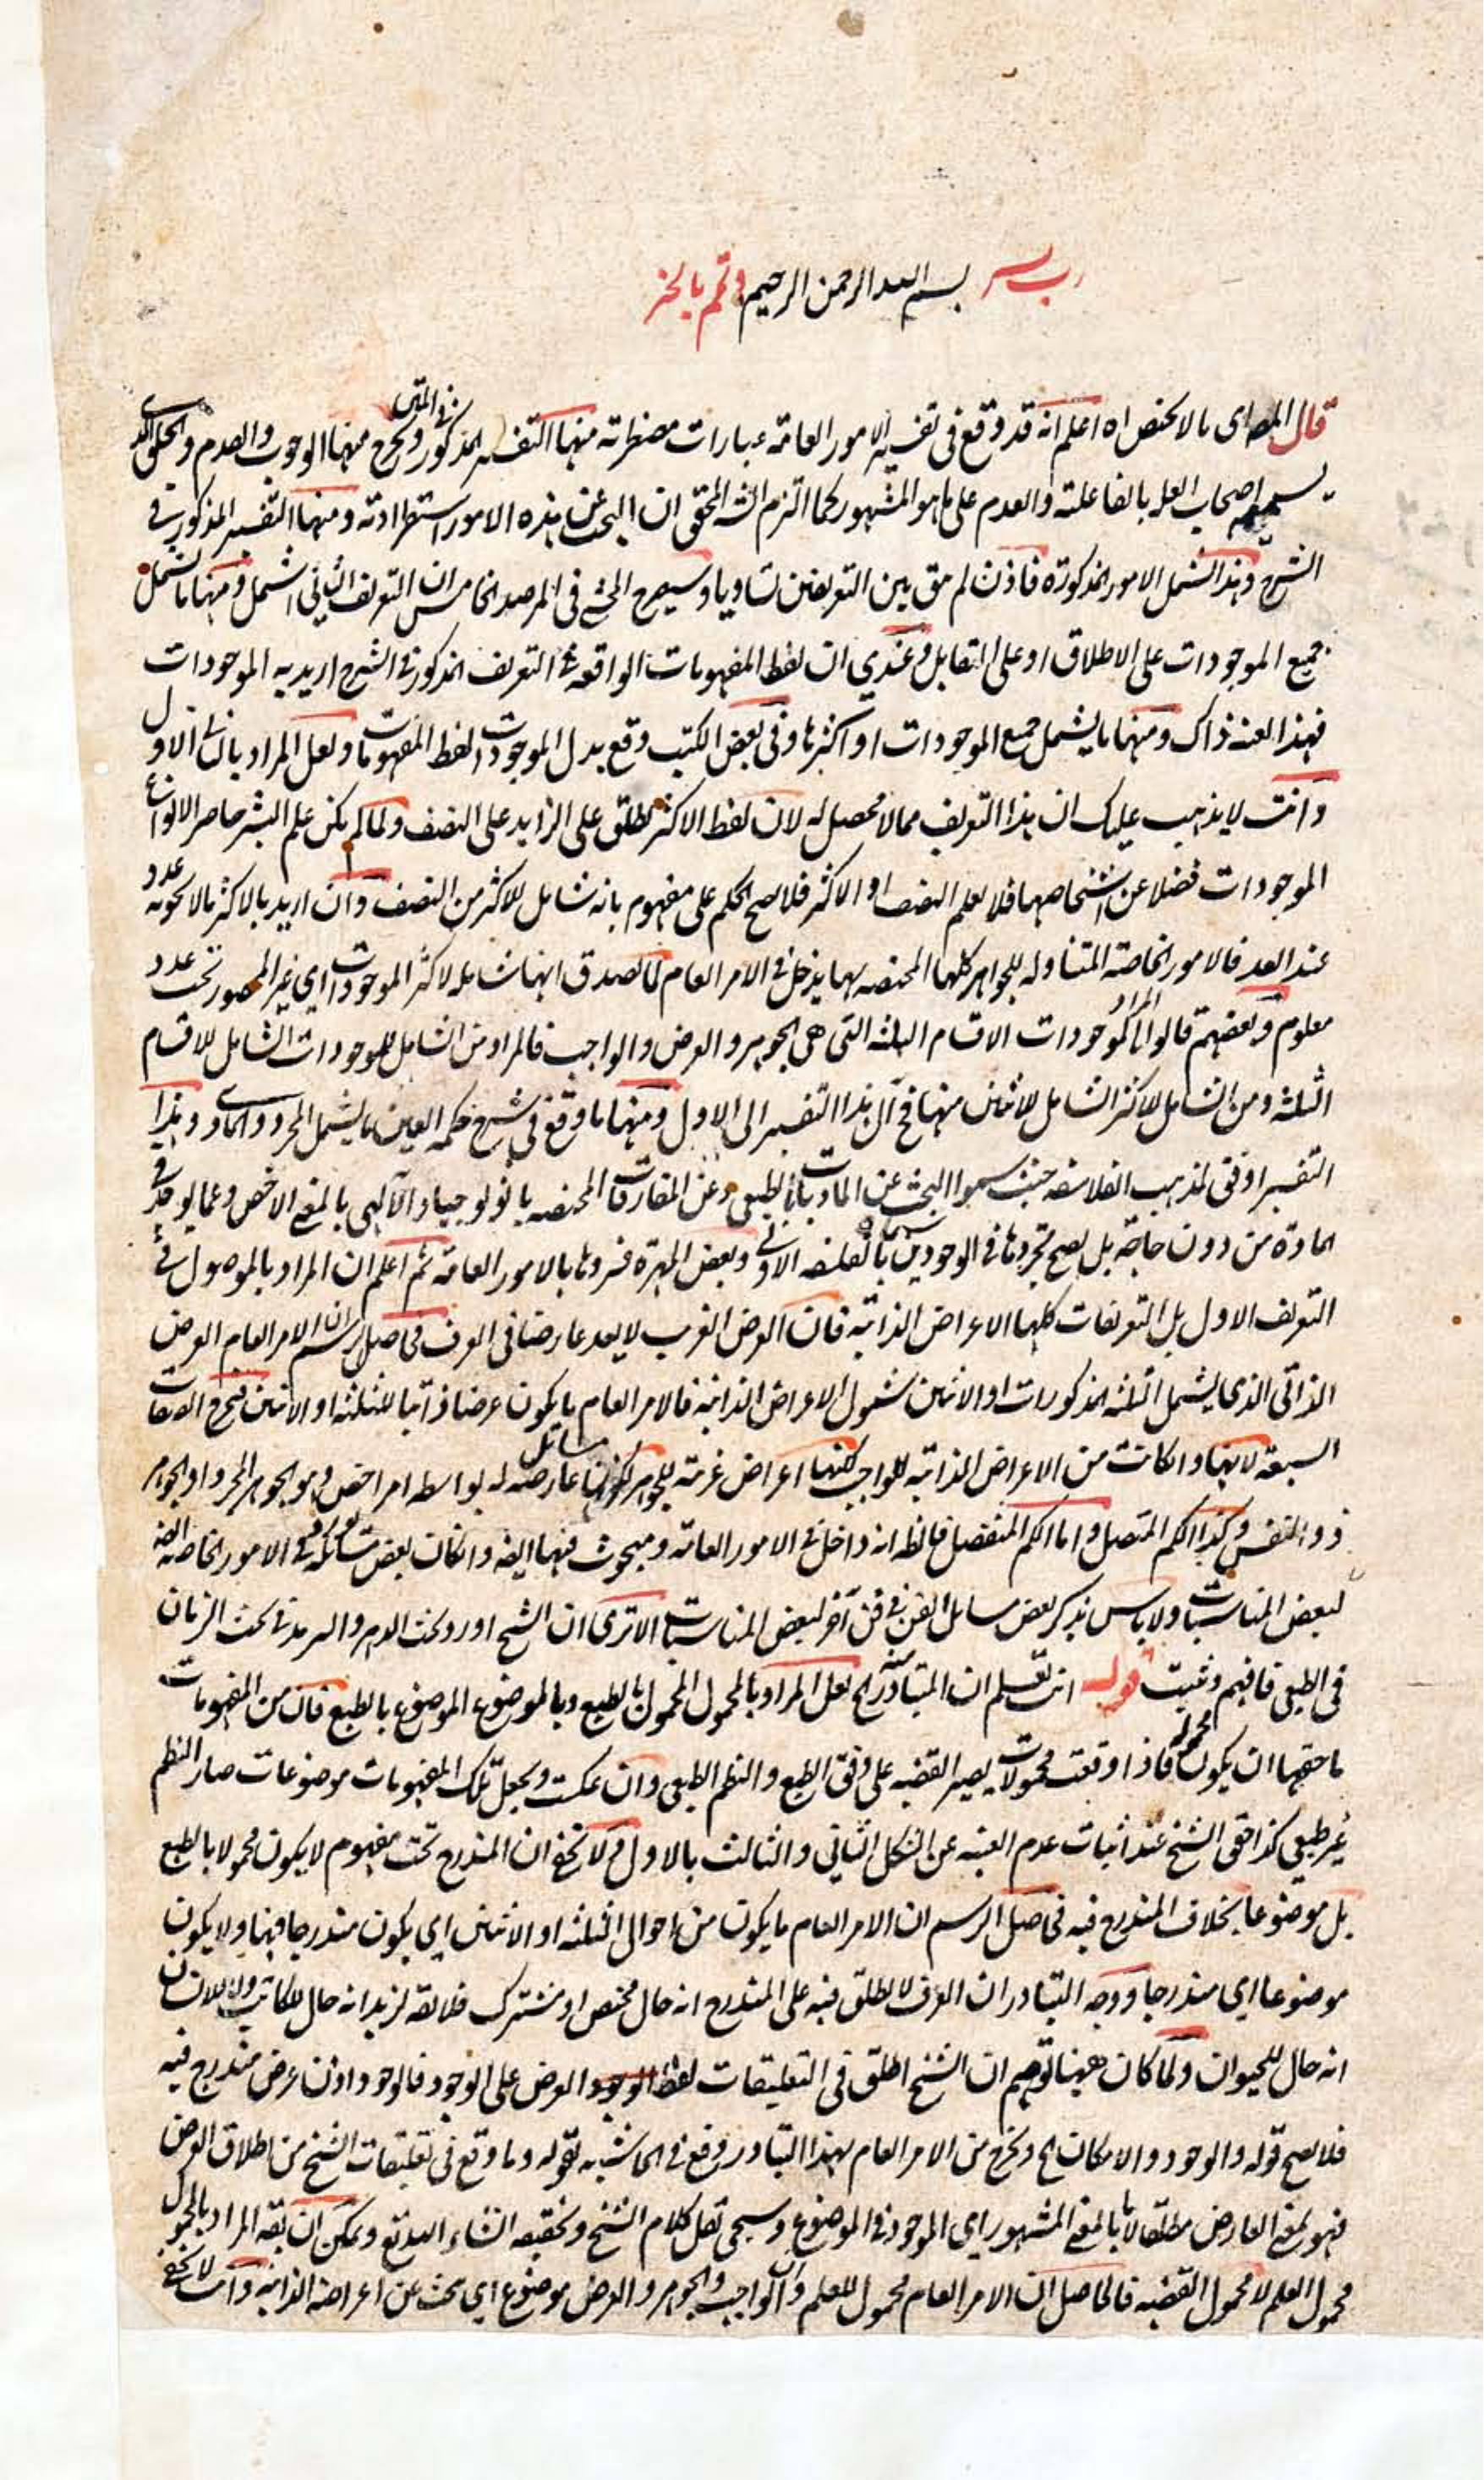 رب يسر بسم الله الرحمن الرحيم وتمم بالخير
قال المص اى ما لا يختص اه اعلم انه قد وقع فى تفسير الامور العامة عبارات مضطربة منها التفسير المذكور فى المتن ويخرج منها الوجوب والعدم
اصحاب بالفاعلية والعدم على ما هو المشهور كما التزم الش المحقق ان البحث عن هذه الامور استطرادية ومنها التفسير المذكور فى
الشرح وهذا اشمل الامور المذكورة فاذن لم يبق بين التعريفين تساويا وسيصرح المحشى فى المرصد الخامس ان التعريف الثانى اشمل ومنها ما يشمل
جميع الموجودات على الاطلاق او على التقابل وعندى ان لفظ المفهومات الواقعة فى التعريف المذكور فى الشرح اريد به الموجودات
فهذا العنه ذاك ومنها ما يشمل جميع الموجودات او اكثرها وفى بعض الكتب وقع بدل الموجودات لفظ المفهومات ولعل المراد بالثانى الاول
وانت لا يذهب عليك ان هذا التعريف مما لا محصل له لان لفظ الاكثر يطلق على الزايد على النصف ولما لم يكن علم البشر حاصر الانواع
الموجودات فضلا عن اشخاصها فلا يعلم النصف او الاكثر فلا يصح الحكم على مفهوم بانه شامل للاكثر من النصف وان اريد بالاكثر ما لا يحويه عدد
عند العد فالامور الخاصة المتناوله للجواهر كلها المختصه بها يدخل فى الامر العام لما يصدق انها شامله لاكثر الموجودات اى غير المحصور تحت عدد
معلوم وبعضهم قالوا المراد بالموجودات الاقسام الثلثه التى هى الجوهر والعرض والواجب فالمراد من الشامل للموجودات الشامل للاقسام
الثلثه ومن الشامل للاكثر الشامل للاثنين منها فح آل هذا التفسير الى الاول ومنها ما وقع فى شرح حكمة العين ما يشمل المجرد والمادى وهذا
التفسير اوفق لمذهب الفلاسفه حيث سموا البحث عن الماديات بالطبعى وعن المفارقات المختصه باثولوجيا والآلهى بالمعنى الاخص وعما يوجد فى
المادة من دون حاجة بل يصح تجردها فى الوجودين بالفلسفه الاولى وبعض المهرة فسروها بالامور العامة ثم اعلم ان المراد بالموصول فى
التعريف الاول بل التعريفات كلها الاعراض الذاتية فان العرض الغريب لا يعد عارضا فى العرف فحاصل الرسم ان الامر العام العرض
الذاتى الذى يشمل الثلثه المذكورات او الاثنين شمول الاعراض الذاتية فالامر العام ما يكون عرضا ذاتيا للثلثه او الاثنين فيخرج الصفات
السبعة لانها وان كانت من الاعراض الذاتية للواجب لكنها اعراض غريبة للجوهر لكونها عارضه له بواسطه امر اخص وهو الجوهر المجرد او الجواهر
ذو النفس وكذا الكم المتصل واما الكم المنفصل فالظ انه داخل فى الامور العامة ومبحوث فيها ايضه وان كان بعض مسائله فى الامور الخاصه
لبعض المناسبات ولا باس بذكر بعض مسايل الفن فى فن آخر لبعض المناسبات الا ترى ان الشيخ اورد بحث الدهر والسرمد فى بحث الزمان
فى الطبعى فافهم وتثبت قوله انت تعلم ان المتبادر منه الخ لعل المراد بالمحمول المحمول بالطبع وبالموضوع الموضوع بالطبع فان من المفهومات
ما حقها ان يكون محمولة فاذا وقعت محمولات يصير القضيه على وفق الطبع والنظم الطبعى وان عكست ويجعل تلك المفهومات موضوعات صار النظم
غير طبعى كذا حقق الشيخ عند اثبات عدم الغنيه عن الشكل الثانى والثالث بالاول ولا يخفى ان المندرج تحت مفهوم لا يكون محمولا بالطبع
بل موضوعا بخلاف المندرج فيه فحاصل الرسم ان الامر العام ما يكون من احوال الثلثه او الاثنين اى يكون مندرجا فيها ولا يكون
موضوعا اى مندرجا ووجه التبادر ان العرف لا يطلق فيه على المندرج انه حال مختص او مشترك فلا يقه لزيد انه حال للكاتب ولا للانسان
انه حال للحيوان ولما كان ههنا توهم ان الشيخ اطلق فى التعليقات لفظ العرض على الوجود فالوجود اذن عرض مندرج فيه
فلا يصح قوله والوجود والامكان الخ ويخرج من الامر العام بهذا التبادر دفع فى الحاشيه بقوله وما وقع فى تعليقات الشيخ من اطلاق العرض
فهو بمعنى العارض مطلقا لا بالمعنى المشهور اى الموجود فى الموضوع وسيجى نقل كلام الشيخ وتحقيقه انشاء الله تع ويمكن ان يقه المراد بالمحمول
محمول العلم لا محمول القضيه فالحاصل ان الامر العام محمول للعلم وان الواجب والجوهر والعرض موضوع اى يبحث عن اعراضه الذاتية وانت لا يخفى